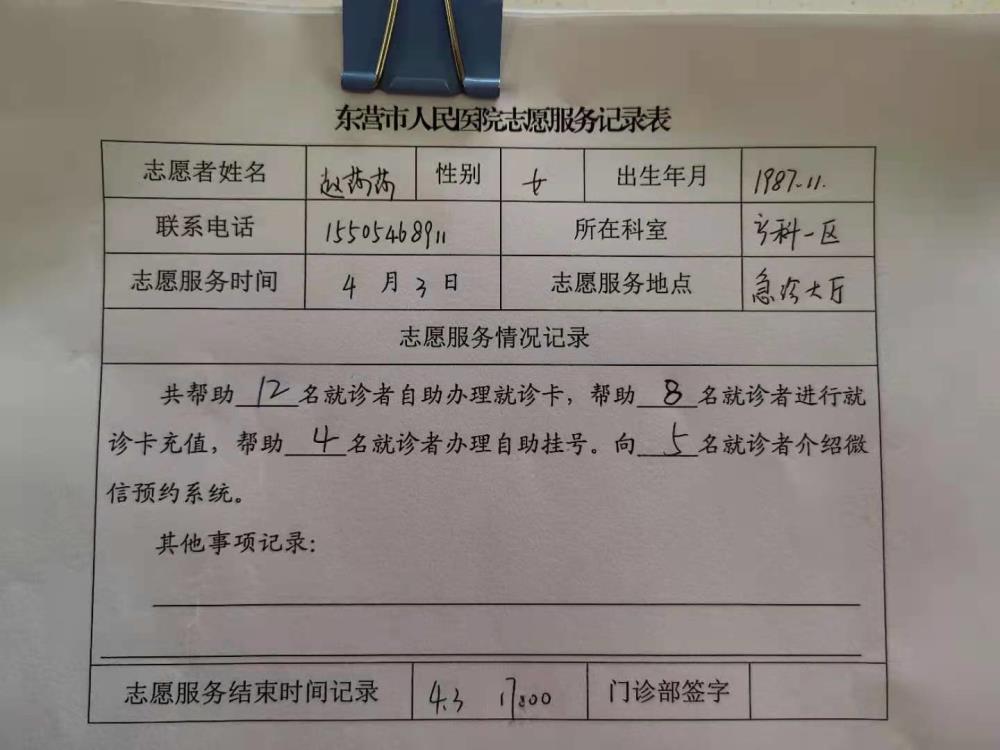 东营市人民医院志愿服务记录表
志愿者姓名 赵 性别 女 出生年月 1987.11.
联系电话 15505468911 所在科室 产科一区
志愿服务时间 4月3日 志愿服务地点 急诊大厅
志愿服务情况记录
共帮助12名就诊者自助办理就诊卡，帮助8名就诊者进行就
诊卡充值，帮助4名就诊者办理自助挂号。向5名就诊者介绍微
信预约系统。
其他事项记录：
志愿服务结束时间记录 4.3 17:00 门诊部签字